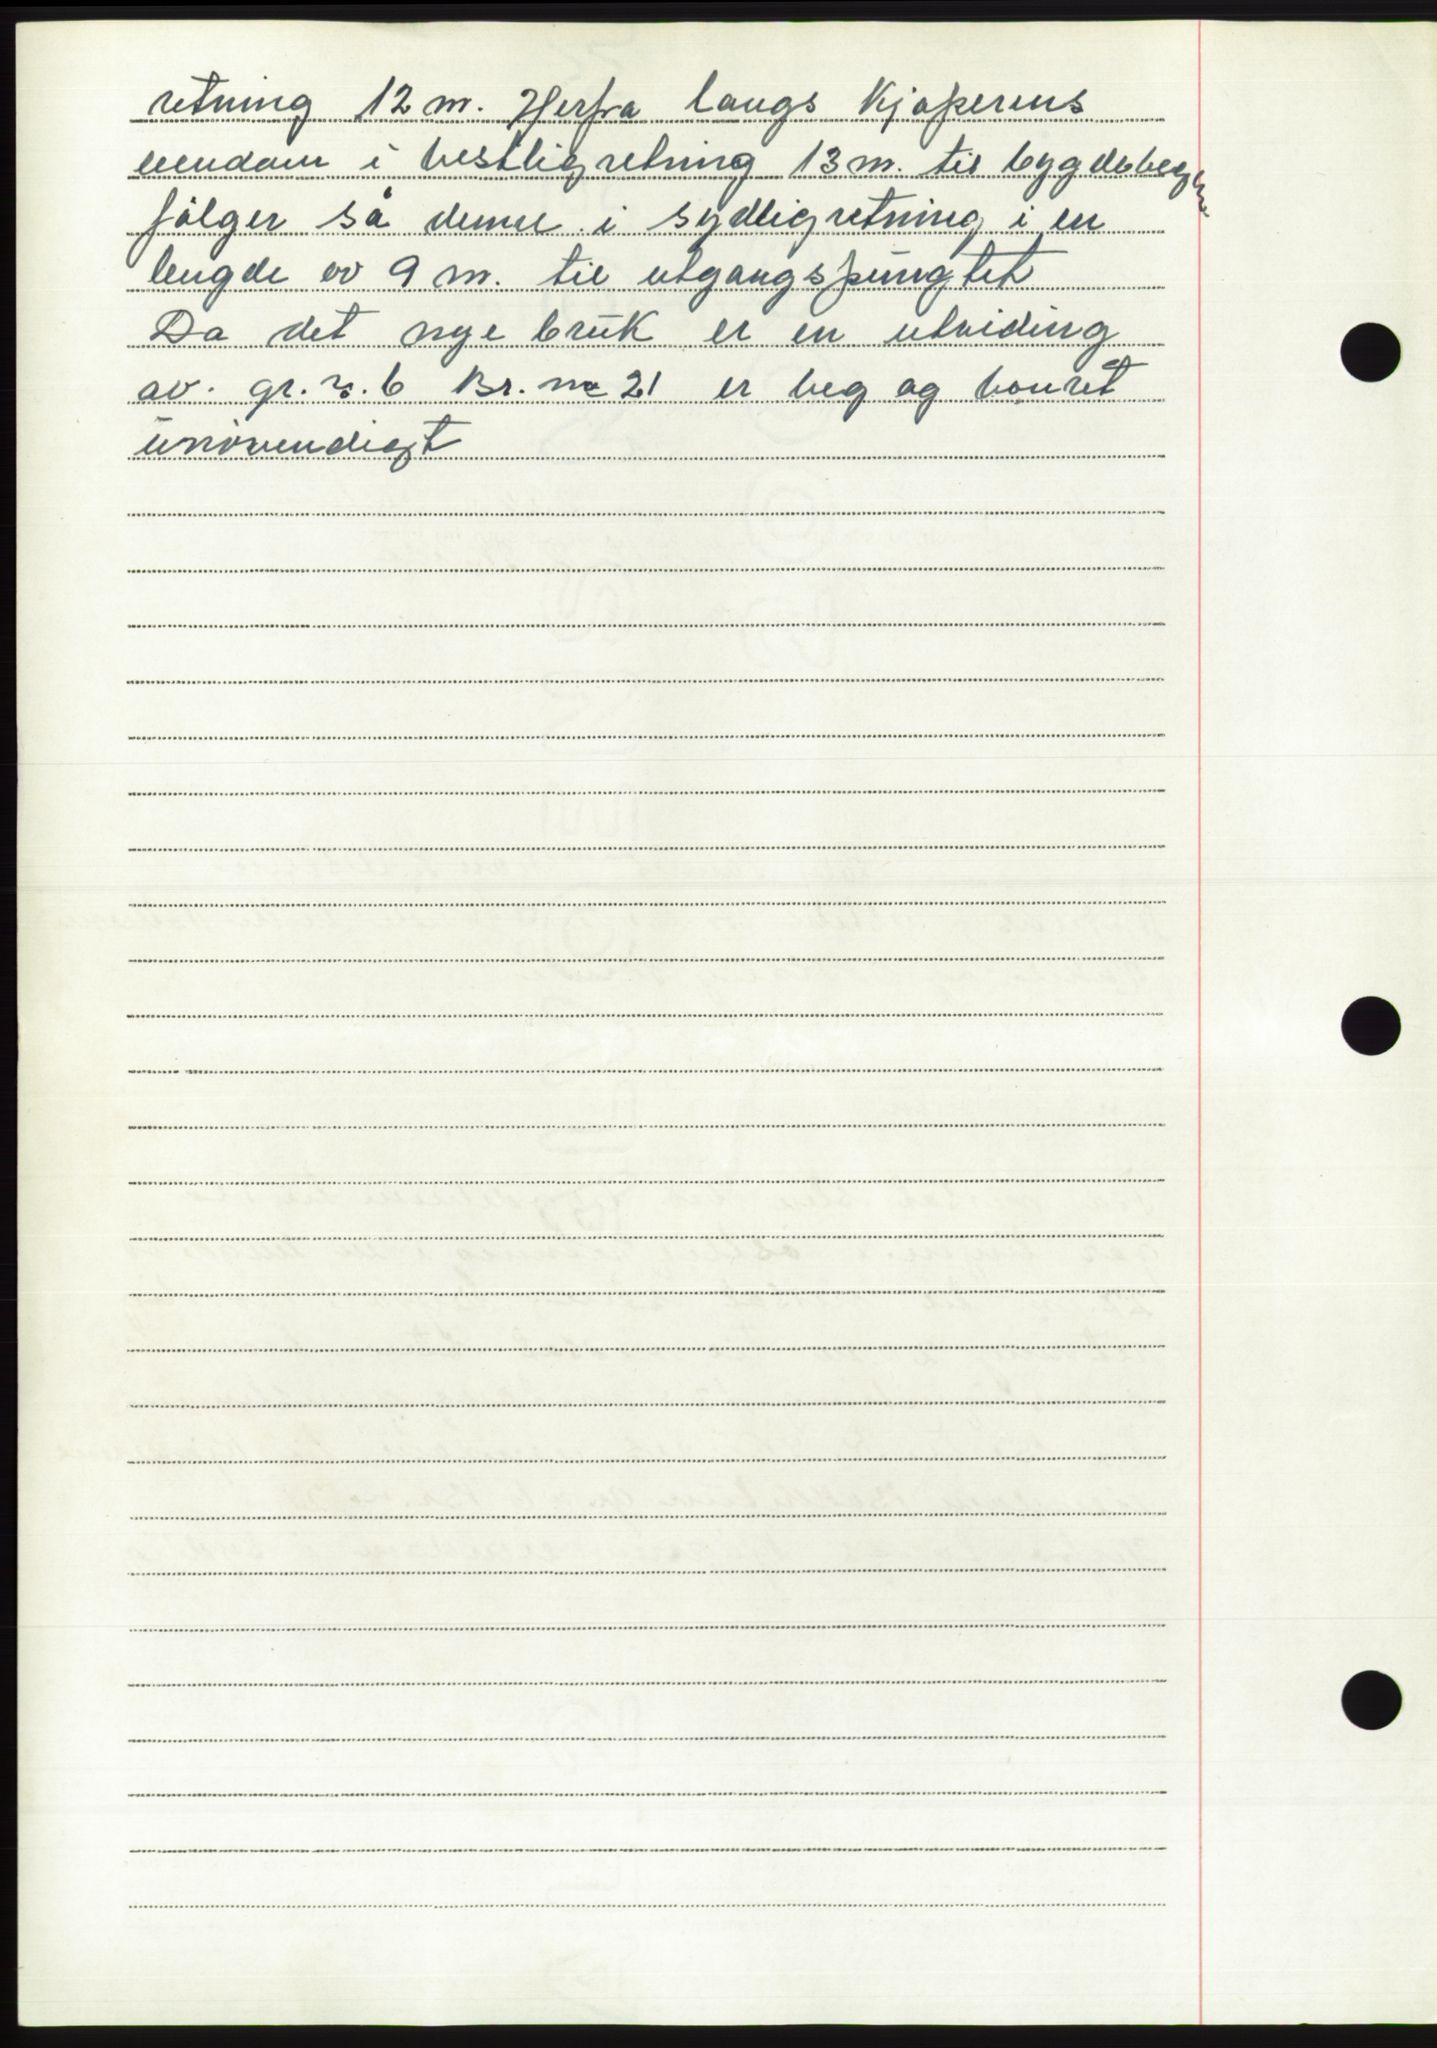 retning 12 m. Herfra langs Kjøperens
eiendom i vestligretning 13 m. til bygdeveg
følger så denne i sydligretning i en
lengde av 9 m. til utgangspungtet
Da det nye bruk er en utviding
av. gr. nr. 6 Br. nr 21 er veg og vanret
unövendigt